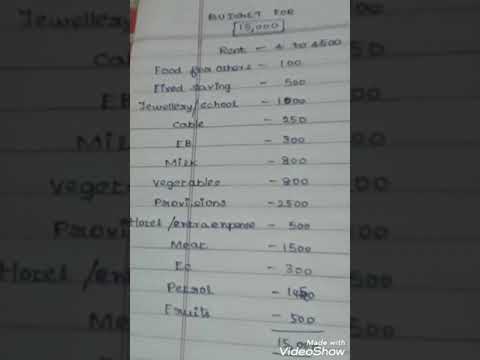 BUDGET FOR
15,000
Rent - 4 to 4500
Food for others - 100
Fixed saving - 500
Jewellery/school - 1000
Cable - 250
EB - 300
Milk - 800
Vegetables - 800
Provisions - 2500
Hotel /extra expense - 500
Meat - 1500
Ec - 300
Petrol
Fruits - 500
15,0
Made with
VideoShow